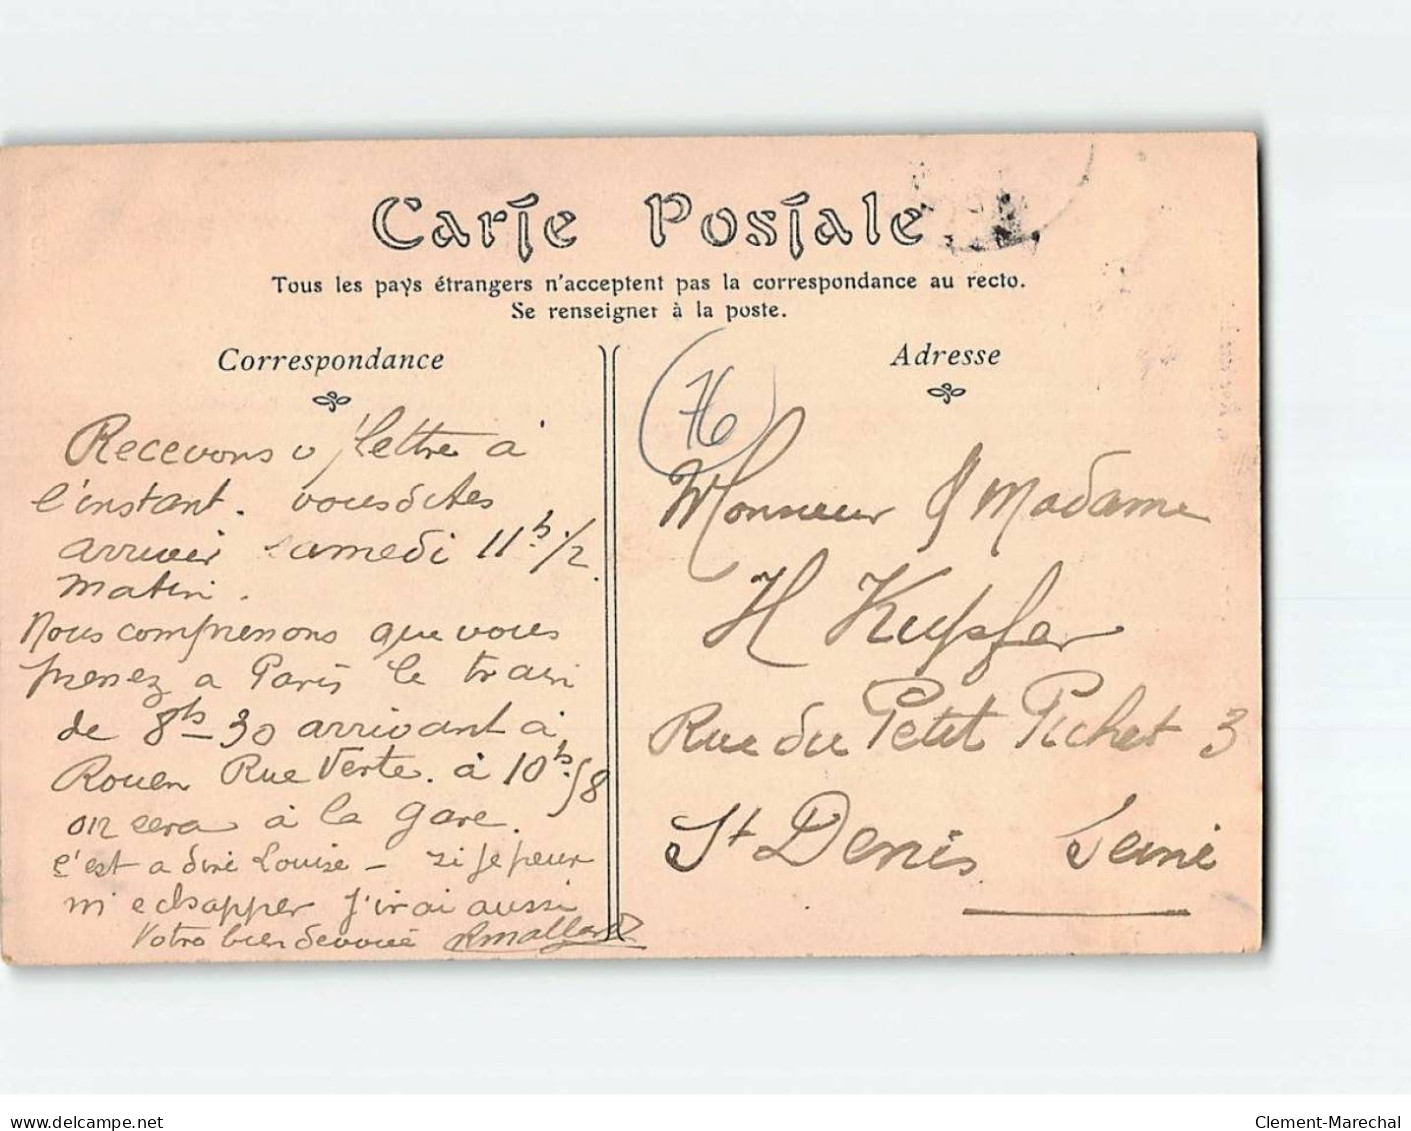 Carte Postale
Tous les pays étrangers n'acceptent pas la correspondance au recto.
Se renseigner à la poste.
Correspondance
Recevons v/ lettre à
l'instant. vous dites
arriver samedi 11h 1/2
matin.
Nous comprenons que vous
prenez a Paris le train
de 8h-30 arrivant à
Rouen Rue Verte. à 10h 58
on sera à la gare.
c'est a dire Louise - si je peux
m'echapper j'irai aussi
Votre bien devoué
Adresse
76
Monsieur & Madame
H Kupfer
Rue du Petit Pichet 3
St Denis
Seine
delcampe.net
Clement-Marechal